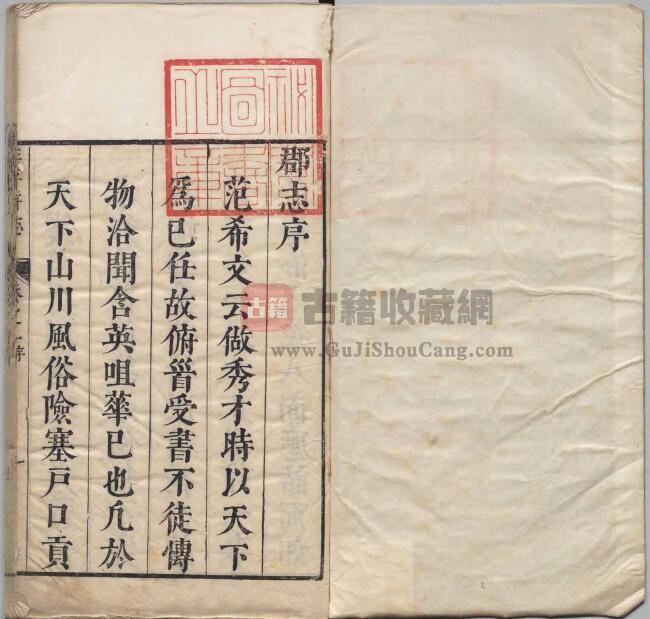 郡志序
范希文云做秀才時以天下
爲已任故俯首受書不徒慱
物洽聞含英咀華已也凢於
天下山川風俗險塞戸口貢
古籍
古籍收藏網
www.GuJiShouCang.com